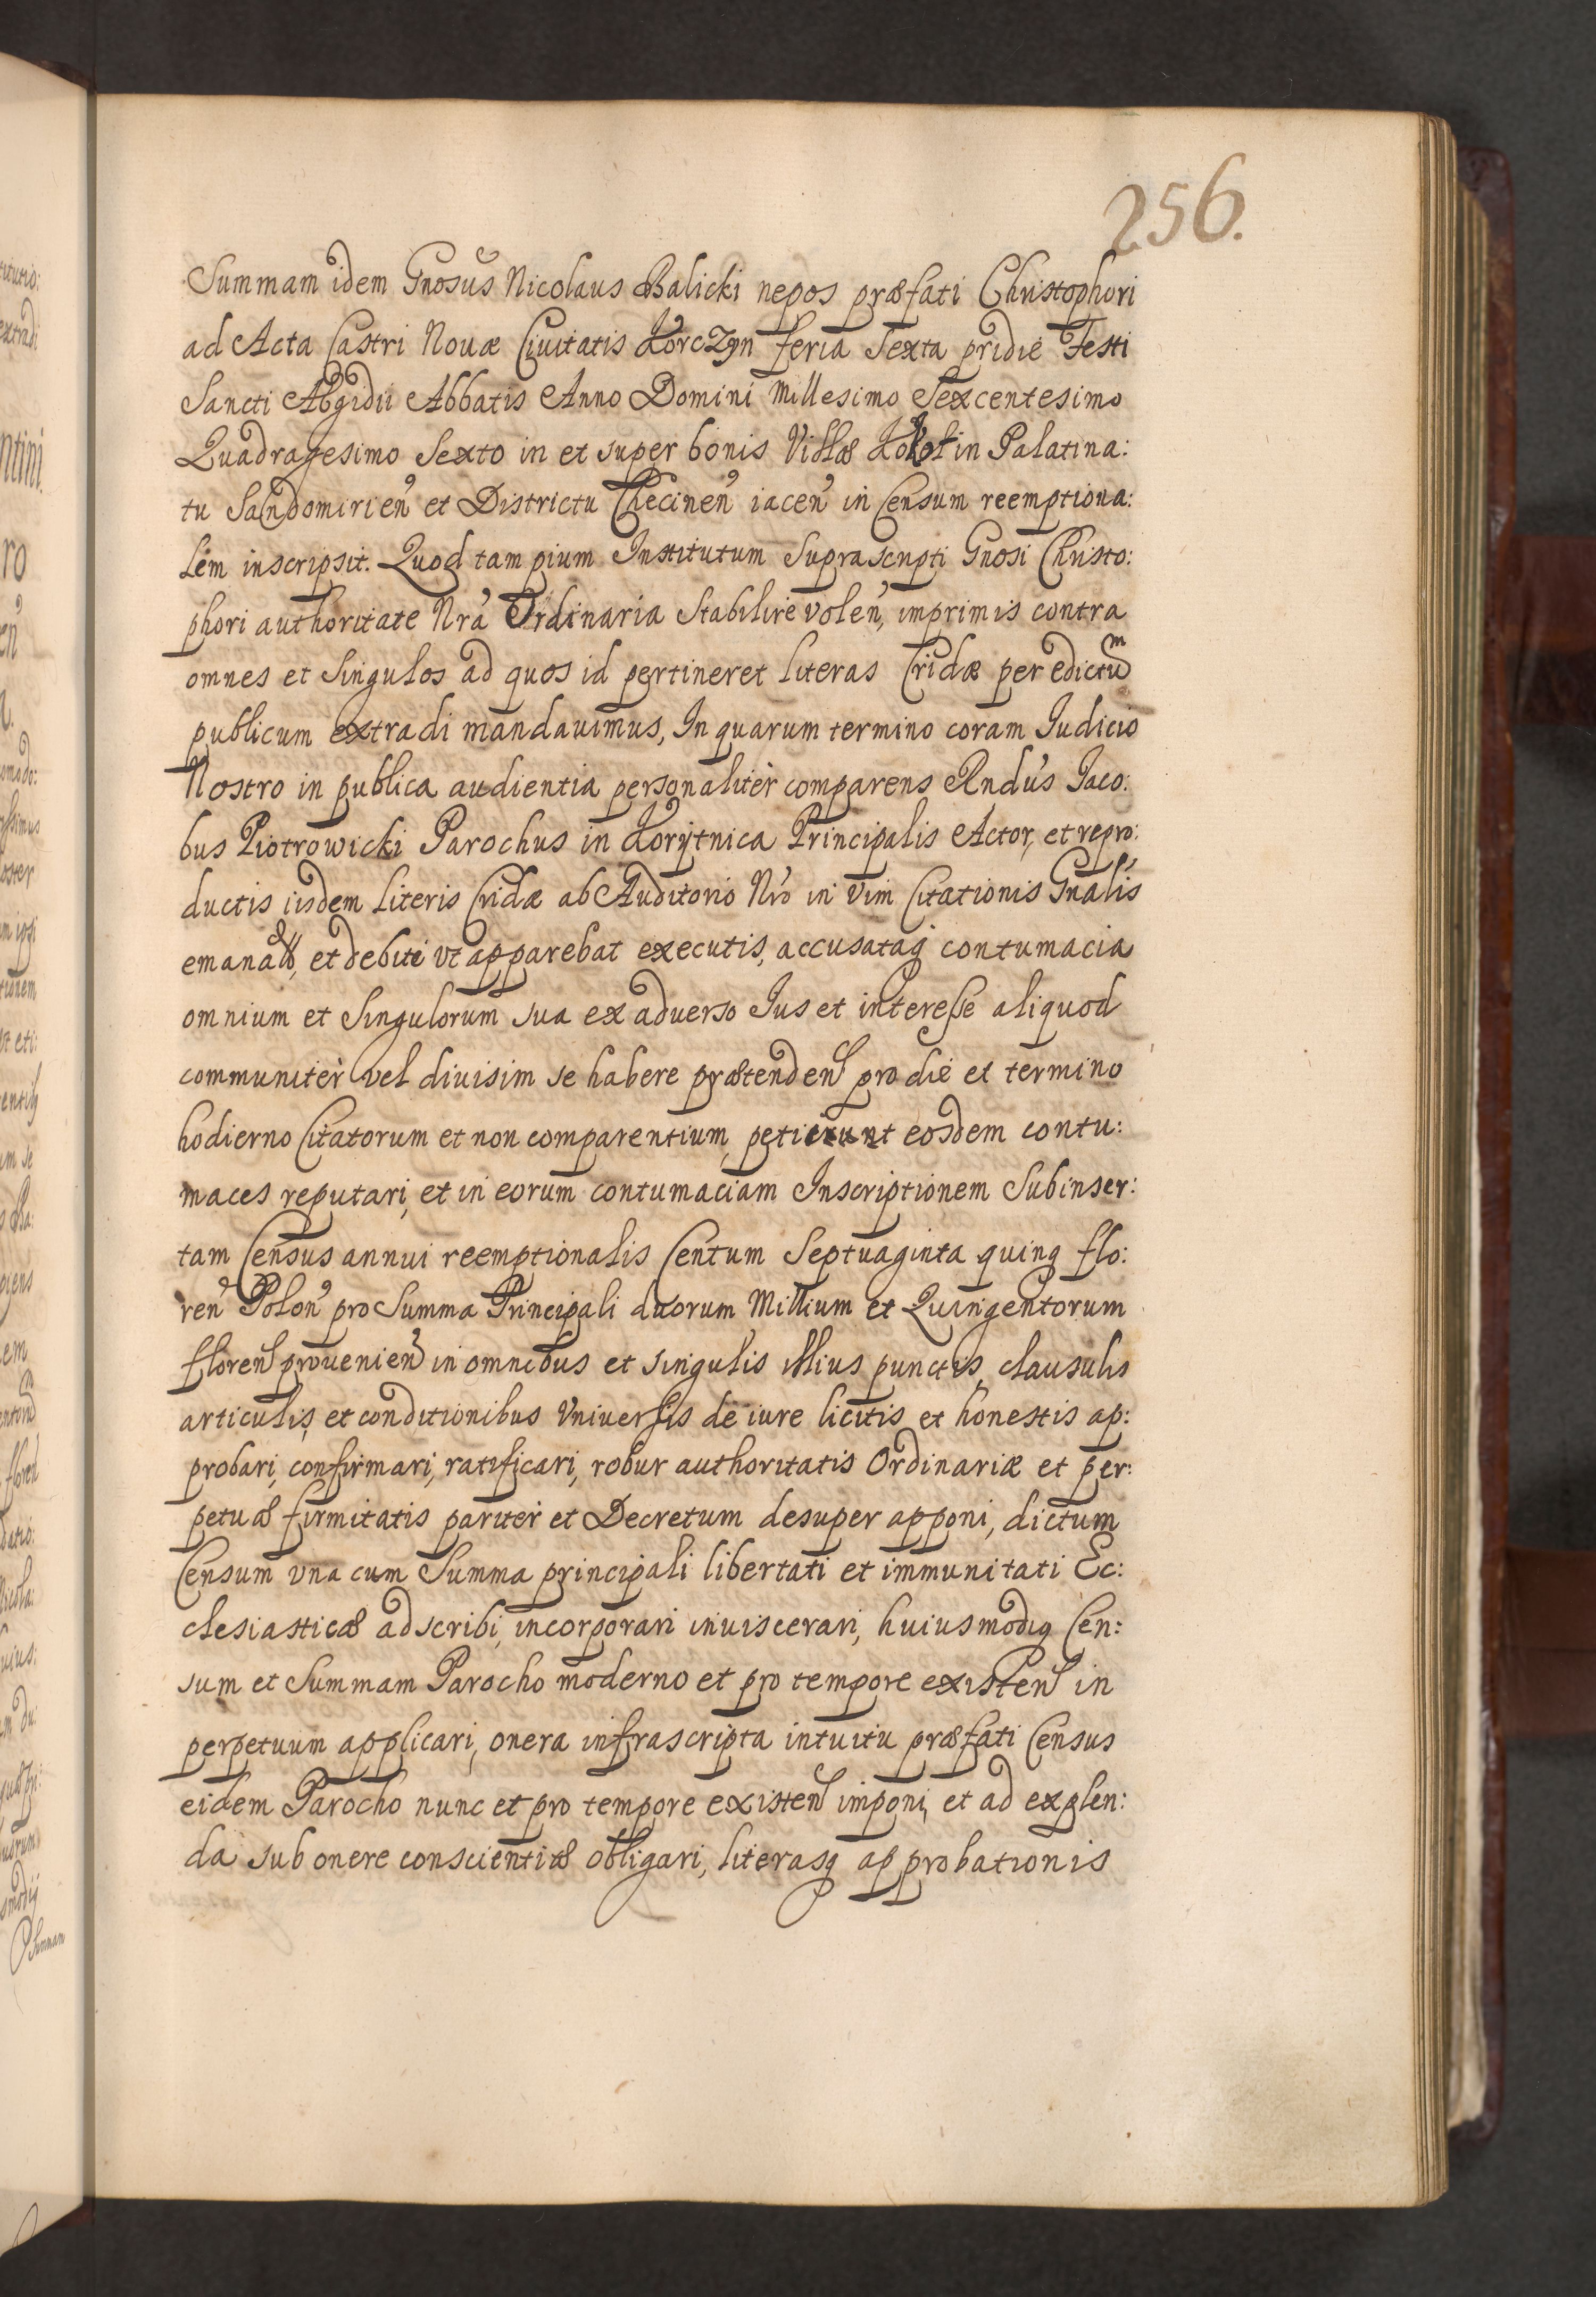 256.
Summam idem Gnosus Nicolaus Balicki nepos præfati Christophori
ad Acta Castri Nouæ Ciuitatis Korczyn feria Sexta pridie Festi
Sancti Ægidii Abbatis Anno Domini Millesimo Sexcentesimo
Quadragesimo Sexto in et super bonis Villæ Kokot in Palatina:
tu Sandomirien et Districtu Checinen iacen in Censum reemptiona:
lem inscripsit. Quod tam pium Institutum Suprascripti Gnosi Christo:
phori authoritate Nrã Ordinaria Stabilire volen, imprimis contra
omnes et Singulos ad quos id pertineret literas Cridæ per edictum
publicum extradi mandauimus, In quarum termino coram Iudicio
Nostro in publica audientia personalitèr comparens Rndus Iaco:
bus Piotrowicki Parochus in Korÿtnica Principalis Actor, et repro:
ductis iisdem literis Cridæ ab Auditorio Nro in vim Citationis Gnalis
emanatis, et debite vt apparebat executis, accusataq contumacia
omnium et Singulorum sua ex aduerso Ius et interesse aliquod
communitèr vel diuisim se habere prætenden pro die et termino
hodierno Citatorum et non comparentium, petierunt eosdem contu:
maces reputari, et in eorum contumaciam Inscriptionem Subinser:
tam Census annui reemptionalis Centum Septuaginta quinq flo:
ren Polon pro Summa Principali duorum Millium et Quingentorum
floren prouenien in omnibus et singulis illius punctis, clausulis
articulis, et conditionibus Vniuersis de iure licitis et honestis ap:
probari, confirmari, ratificari, robur authoritatis Ordinariæ et per:
petuæ firmitatis paritèr et Decretum desuper apponi, dictum
Censum vna cum Summa principali libertati et immunitati Ec:
clesiasticæ adscribi, incorporari inuiscerari, huiusmodiq Cen:
sum et Summam Parocho moderno et pro tempore existen in
perpetuum applicari, onera infrascripta intuitu præfati Census
eidem Parocho nunc et pro tempore existen imponi, et ad explen:
da sub onere conscientiæ obligari, literasq approbationis